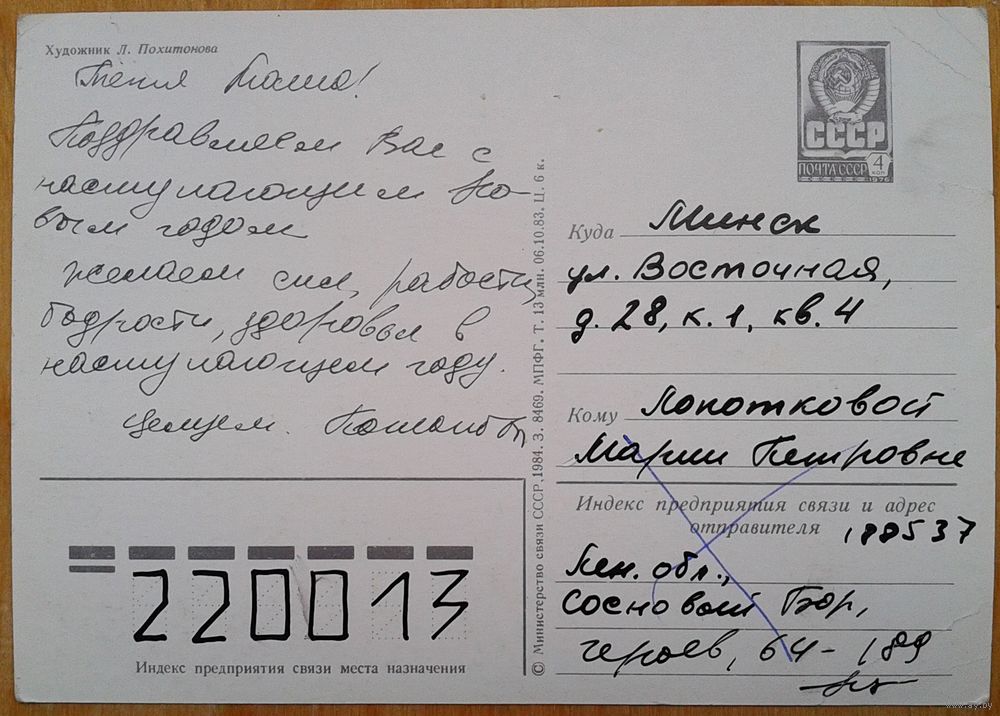 Художник Л. Похитонова
Тётя Маша!
Поздравляем Вас с
наступающим Но-
вым годом
желаем сил, радости,
бодрости, здоровья в
наступающем году.
Целуем.
СССР
ПОЧТА СССР 4 КОП
1976
Куда Минск
ул. Восточная,
д. 28, к. 1, кв. 4
Кому Лопотковой
Марии Петровне
Индекс предприятия связи и адрес
отправителя 188537
Лен. обл.,
Сосновый Бор,
Героев, 64 - 189
220013
Индекс предприятия связи места назначения
© Министерство связи СССР, 1984. З. 8469. МПФГ. Т. 13 млн. 06.10.83. Ц. 6 к.
www.ay.by